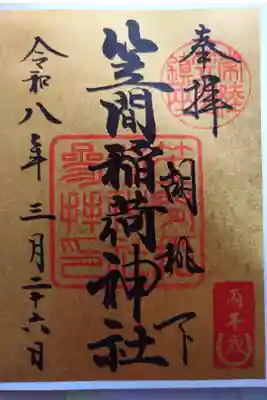 奉拝
丙午歳
胡桃下
笠間稲荷神社
令和八年三月二十六日